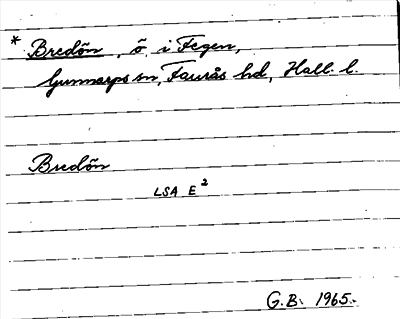 * Bredön, ö i Fegen,
Gunnarps sn, Faurås hd, Hall. l.
Bredön
LSA E²
G.B. 1965.